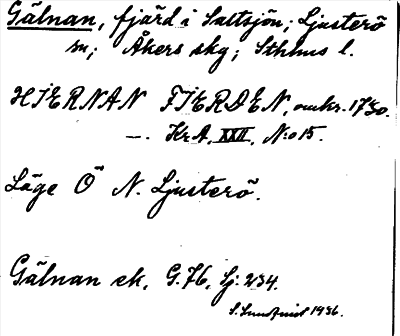 Gälnan, fjärd i Saltsjön; Ljusterö
sn; Åkers skg; Sthlms l.
HIERNAN FIERDEN, omkr. 1730.
—. KrA, XXII, N:o 15.
Läge Ö N. Ljusterö.
Gälnan ek, G.76, Lj: 234.
S. Lundqvist 1936.